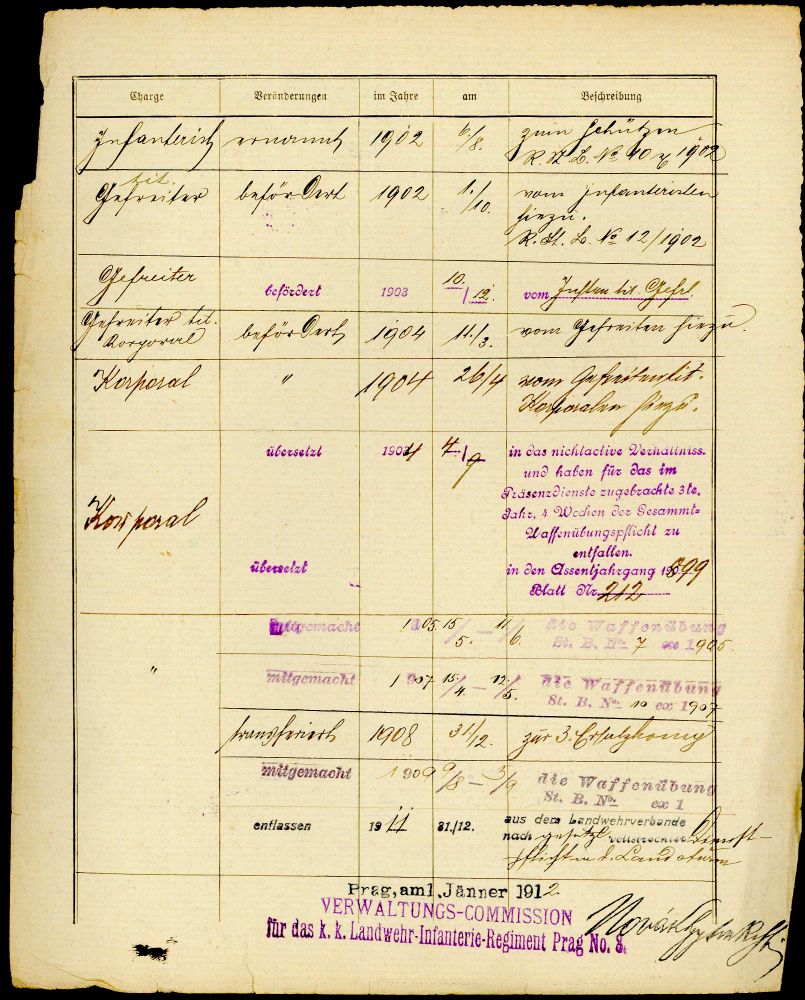 Charge Veränderungen im Jahre am Beschreibung
Infanterist ernannt 1902 6/8. zum Schützen
R. St. B. No 40 ex 1902
tit.
Gefreiter befördert 1902 1./10. vom Infanteristen
hiezu.
R. St. B. No 12/1902
Gefreiter befördert 1903 10/12. vom Inftn tit. Gefr.
Gefreiter tit. befördert 1904 11./3. vom Gefreiten hiezu.
Korporal
Korporal " 1904 26/4 vom Gefreiten tit.
Korporalen hiezu.
übersetzt 1904 4/9 in das nichtactive Verhältniss.
und haben für das im
Präsenzdienste zugebrachte 3te.
Jahr, 4 Wochen der Gesammt=
Korporal
Waffenübungspflicht zu
entfallen.
übersetzt in den Assentjahrgang 1899
Blatt Nr. 212
mitgemacht 1905 15/5. — 11/6. die Waffenübung
St. B. No. 7 ex 1905
"
mitgemacht 1907 15./4. — 12./5. die Waffenübung
St. B. No. 10 ex 1907
transferiert 1908 31/12. zur 3. Ersatzkomp
mitgemacht 1909 9/8 — 5/9 die Waffenübung
St. B. No. ex 1
entlassen 1911 31./12. aus dem Landwehrverbande
nach gesetzl vollstreckter Dienst-
pflicht
Prag, am 1. Jänner 1912
VERWALTUNGS-COMMISSION
für das k. k. Landwehr-Infanterie-Regiment Prag No. 8.
Novák